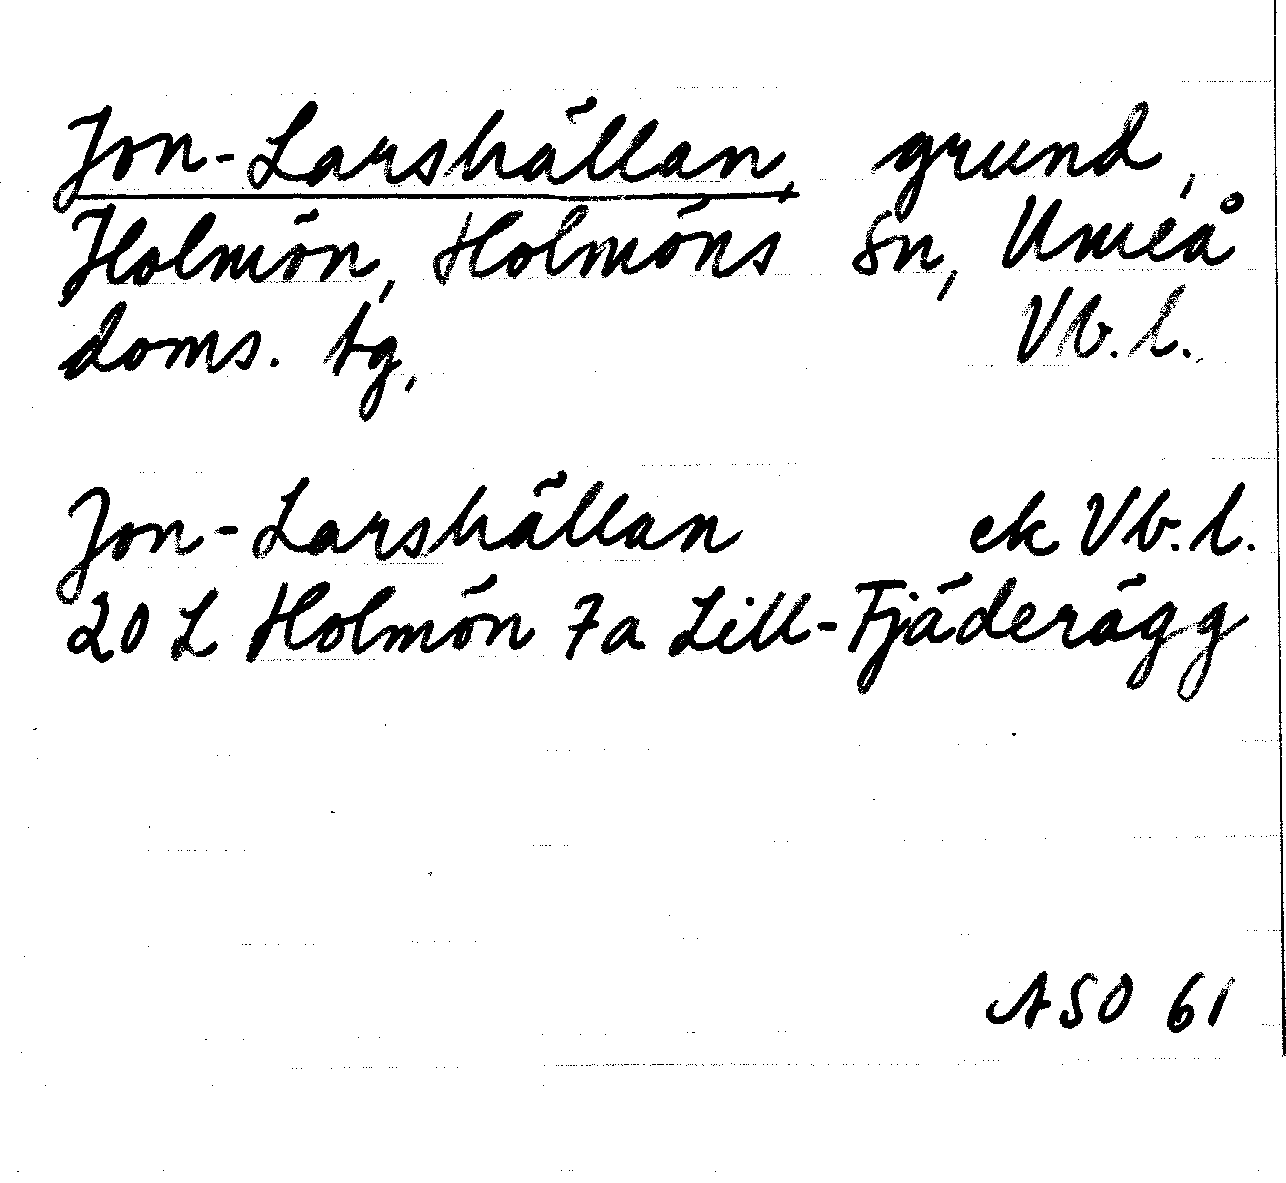 Jon-Larshällan, grund,
Holmön, Holmöns sn, Umeå
doms. tg, Vb. l.
Jon-Larshällan ek Vb. l.
20 L Holmön 7a Lill-Fjäderägg
ASO 61